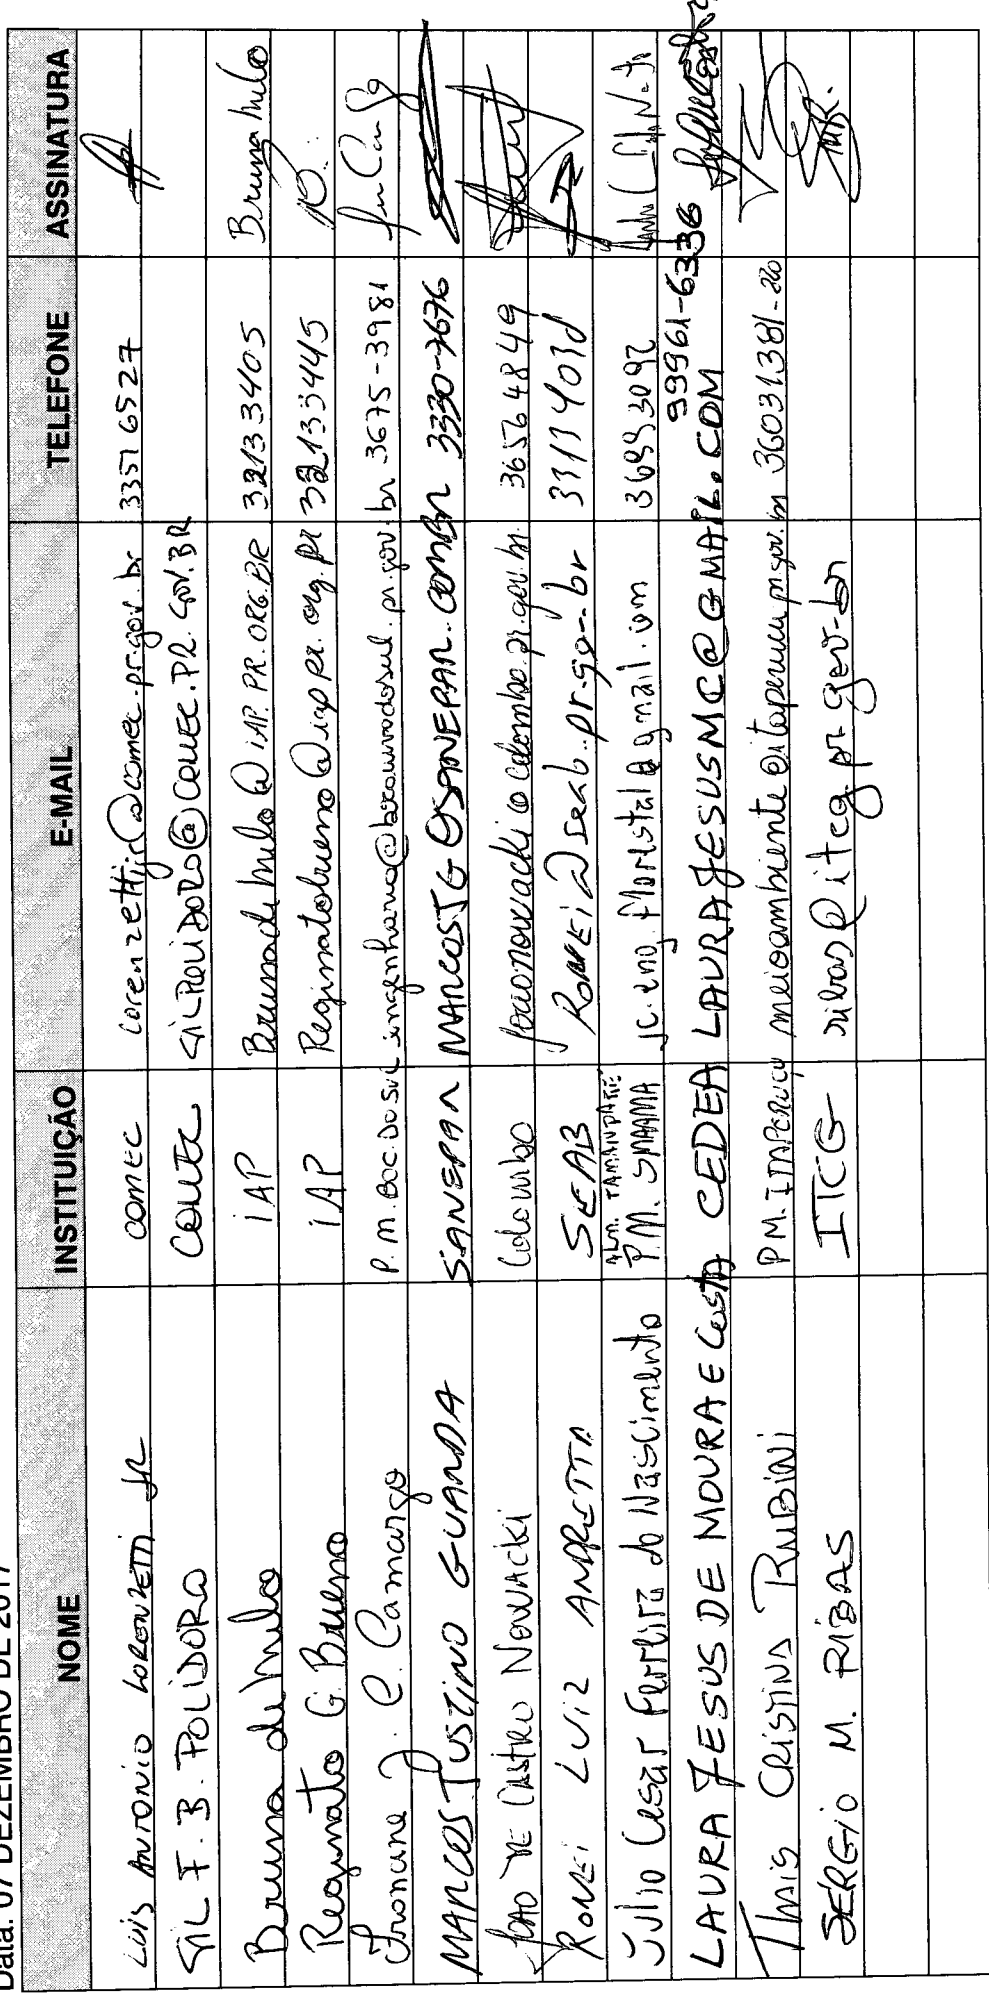 Data: 07 DEZEMBRO DE 2017
NOME INSTITUIÇÃO E-MAIL TELEFONE ASSINATURA
LUIS ANTONIO LORENZETTI JR COMEC lorenzettijr@comec.pr.gov.br 33516527
GIL F. B. POLIDORO COMEC GILPOLIDORO@COMEC.PR.GOV.BR
Bruna de Mello IAP Brunademelo@iAP.PR.ORG.BR 32133405 Bruna Mello
Reginato G. Bueno IAP Reginatobueno@iap.pr.org.pr 32133445
Franciane J. C. Camargo P.M. BOC. DO SUL engenharia@bocaiuvadosul.pr.gov.br 3675-3981
MARCOS JUSTINO GUARDA SANEPAR MARCOSJG@SANEPAR.COM.BR 3330-7676
JOÃO DE CASTRO NOWACKI Colombo joaonowacki@colombo.pr.gov.br 36564849
RONEI LUIZ ANDRETTA SEAB RONEI@seab.pr.gov.br 33114010
Júlio Cesar Ferreira do Nascimento ALM. TAMANDARÉ P.M. SMAMA jc.eng.florestal@gmail.com 36993092
LAURA JESUS DE MOURA E COSTA CEDEA LAURAJESUSMC@GMAIL.COM 99961-6336
THAIS CRISTINA RUBINI P.M. ITAPERUÇU meioambiente@itaperucu.pr.gov.br 36031381
SÉRGIO M. RIBAS ITCG ribas@itcg.pr.gov.br SMR.